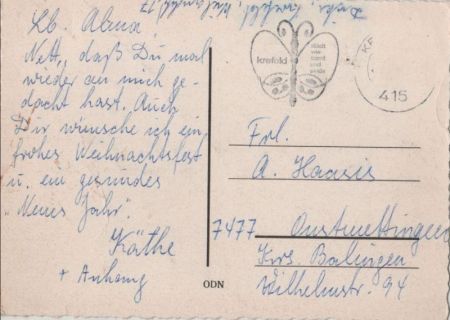 Lb. Alma,
Nett, daß Du mal
wieder an mich ge-
dacht hast. Auch
Dir wünsche ich ein
frohes Weihnachtsfest
u. ein gesundes
"Neues Jahr".
Käthe
+ Anhang
krefeld
stadt
wie
samt
und
seide
KR
415
Frl.
A. Haasis
7477 Onstmettingen
Krs. Balingen
Wilhelmstr. 94
ODN